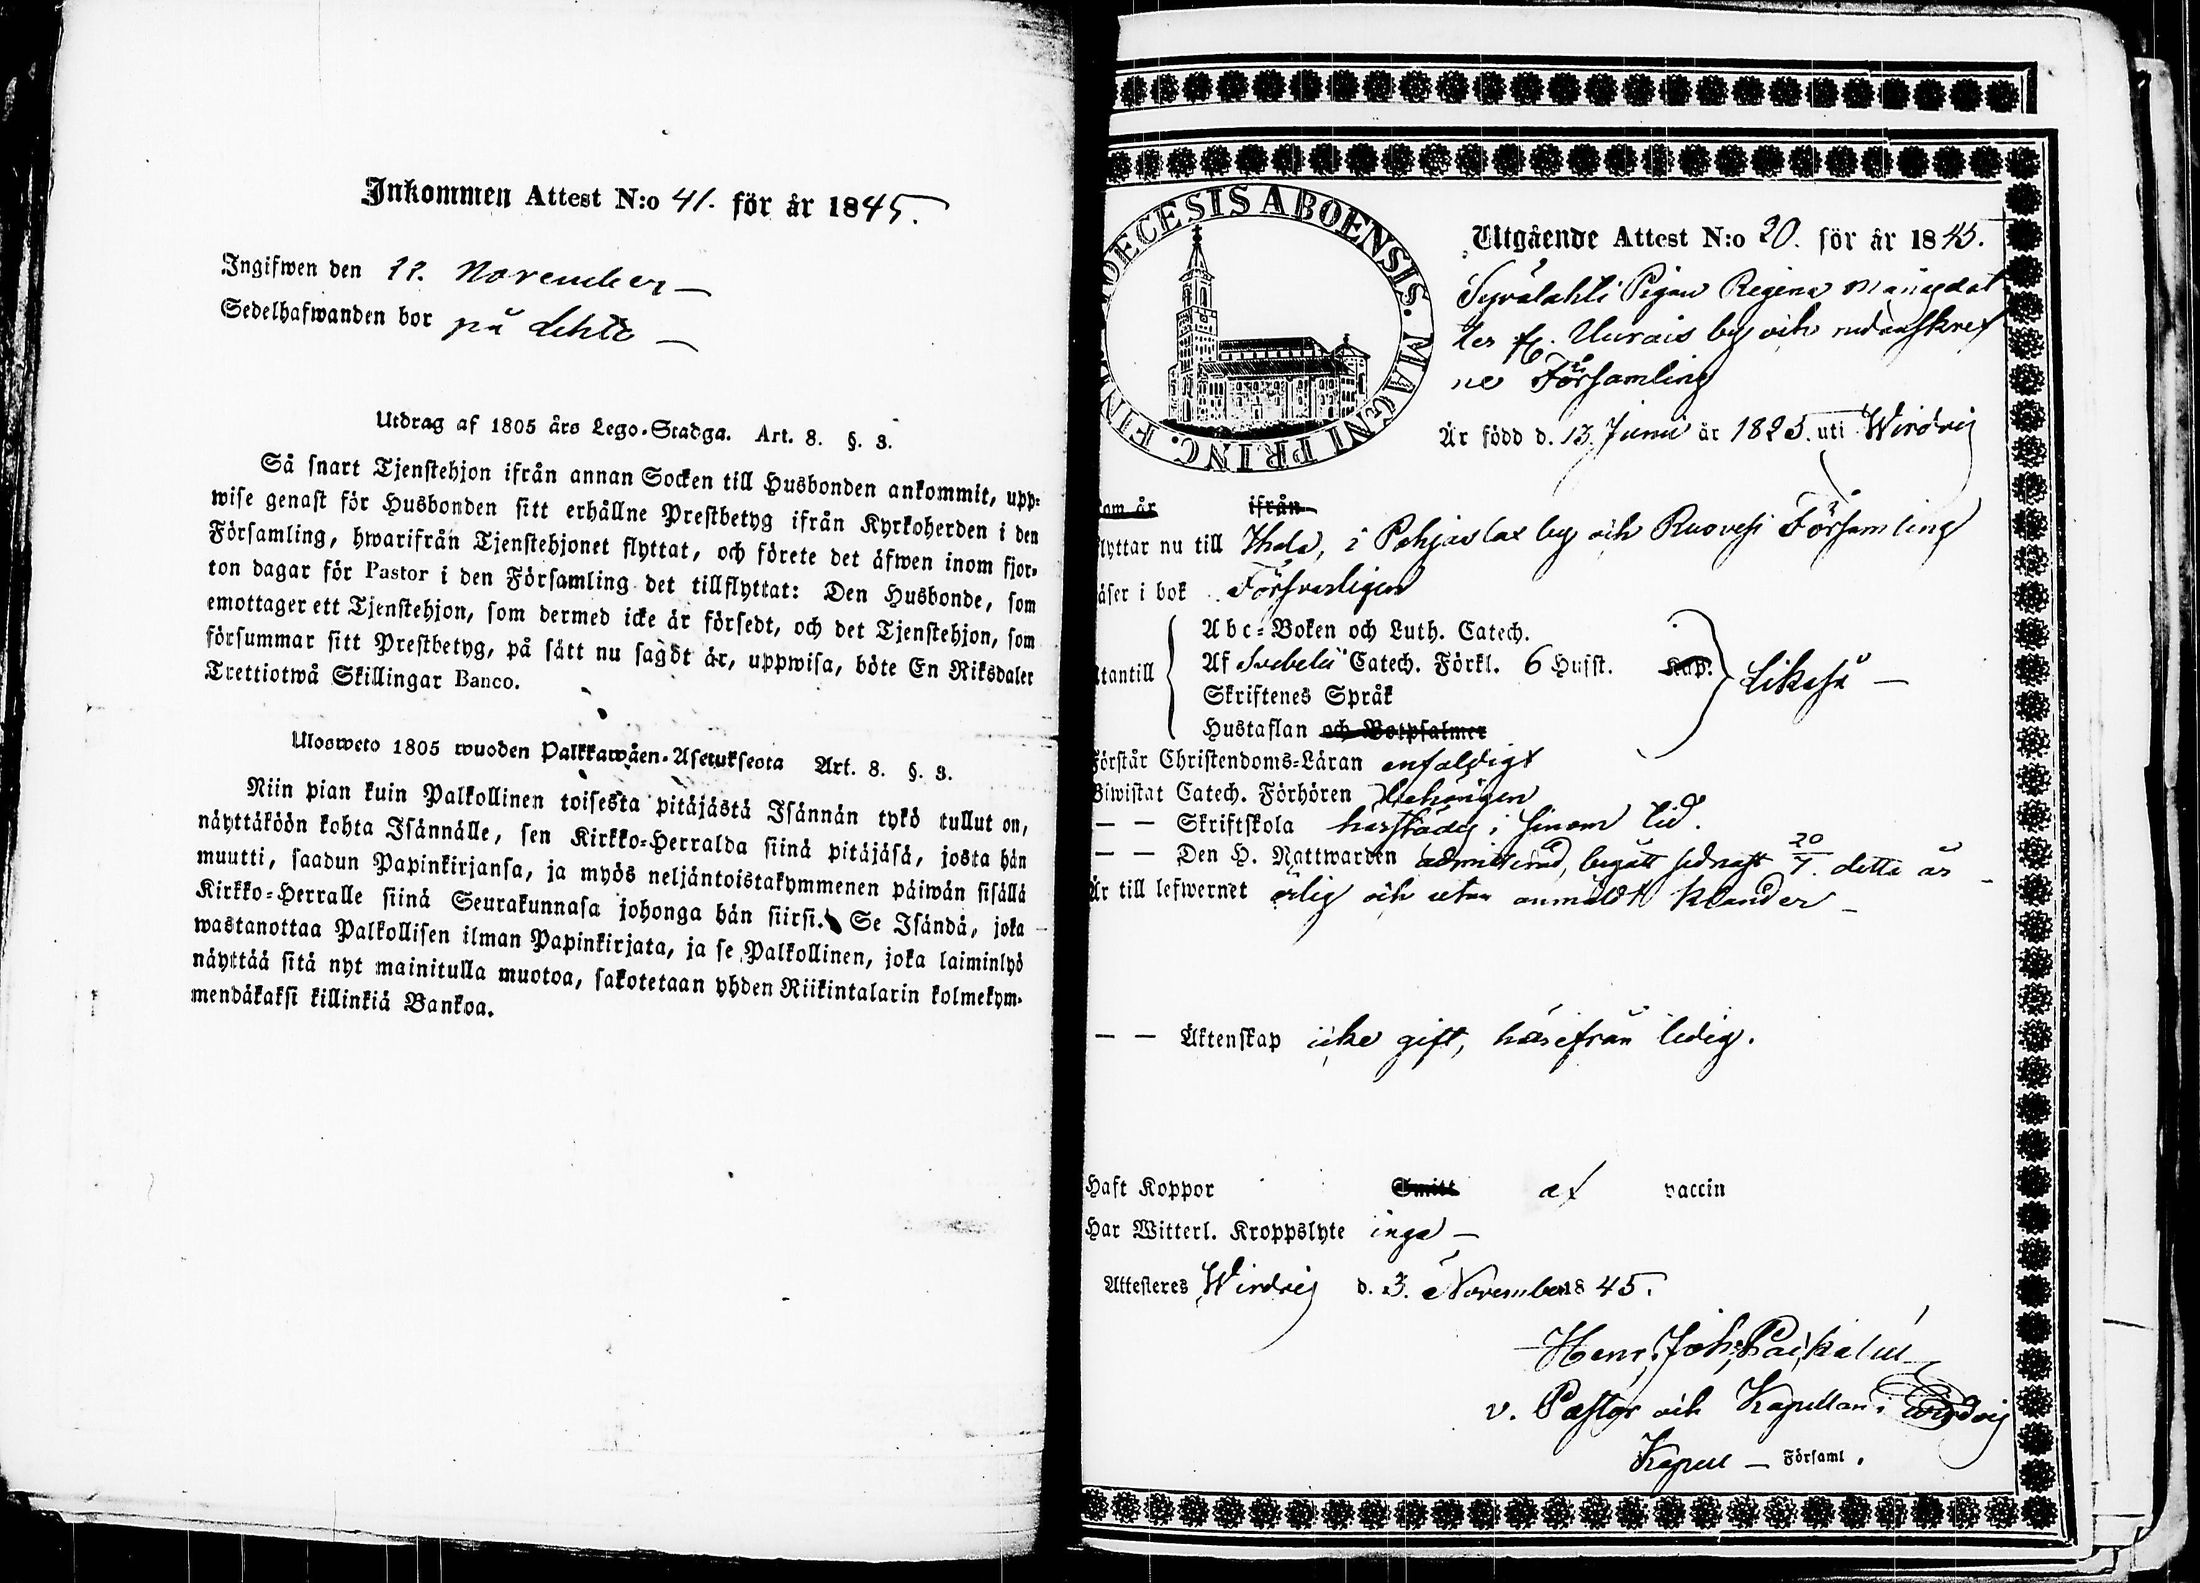 Inkommen Attest N:o 41. för år 1845.
Ingifwen den 22. November —
Sedelhafwanden bor på Lehtis —
Utdrag af 1805 års Lego-Stadga. Art. 8. §. 3.
Så snart Tjenstehjon ifrån annan Socken till Husbonden ankommit, upp-
wise genast för Husbonden sitt erhållne Prestbetyg ifrån Kyrkoherden i den
Församling, hwarifrån Tjenstehjonet flyttat, och förete det äfwen inom fjor-
ton dagar för Pastor i den Församling det tillflyttat: Den Husbonde, som
emottager ett Tjenstehjon, som dermed icke är försedt, och det Tjenstehjon, som
försummar sitt Prestbetyg, på sätt nu sagdt är, uppwisa, böte En Riksdaler
Trettiotwå Skillingar Banco.
Ulosweto 1805 wuoden Palkkawäen-Asetuksesta Art. 8. §. 3.
Niin pian kuin Palkollinen toisesta pitäjästä Isännän tykö tullut on,
näyttäköön kohta Isännälle, sen Kirkko-Herralda siinä pitäjäsä, josta hän
muutti, saadun Papinkirjansa, ja myös neljäntoistakymmenen päiwän sisällä
Kirkko-Herralle siinä Seurakunnasa johonga hän siirsi. Se Isändä, joka
wastanottaa Palkollisen ilman Papinkirjata, ja se Palkollinen, joka laiminlyö
näyttää sitä nyt mainitulla muotoa, sakotetaan yhden Riikintalarin kolmekym-
mendäkaksi killinkiä Bankoa.
DIOECESIS ABOENSIS. MAGNI PRINC. FINL.
Utgående Attest N:o 20. för år 1845.
Pigan Regina Mångsdot
ter fr. Uurais by och nedanskref
ne Församling
Är född d. 13. Junii år 1825. uti Wirdois
som är ifrån
flyttar nu till Ihala, i Pohjaslax by och Ruovesi Församling
läser i bok Försvarligen
Abc-Boken och Luth. Catech.
utantill Af Svebelii Catech. Förkl. 6 Hufst. Kap. Likaså —
Skriftenes Språk
Hustaflan och Botpsalmer
Förstår Christendoms-Läran enfaldigt
Biwistat Catech. Förhören behörigen
— — Skriftskola härstädes i sinom tid.
— — Den H. Nattwarden admitterad, begått sednast 20/7. detta år —
Är till lefwernet ärlig och utan anmäldt klander —
— — Äktenskap icke gift, härifrån ledig.
Haft Koppor Smitt af vaccin
Har Witterl. Kroppslyte inga —
Attesteres Wirdois d. 3. November 1845.
Henr. Joh.
v. Pastor och Kapellan i Wirdois
Kapell — Församl.